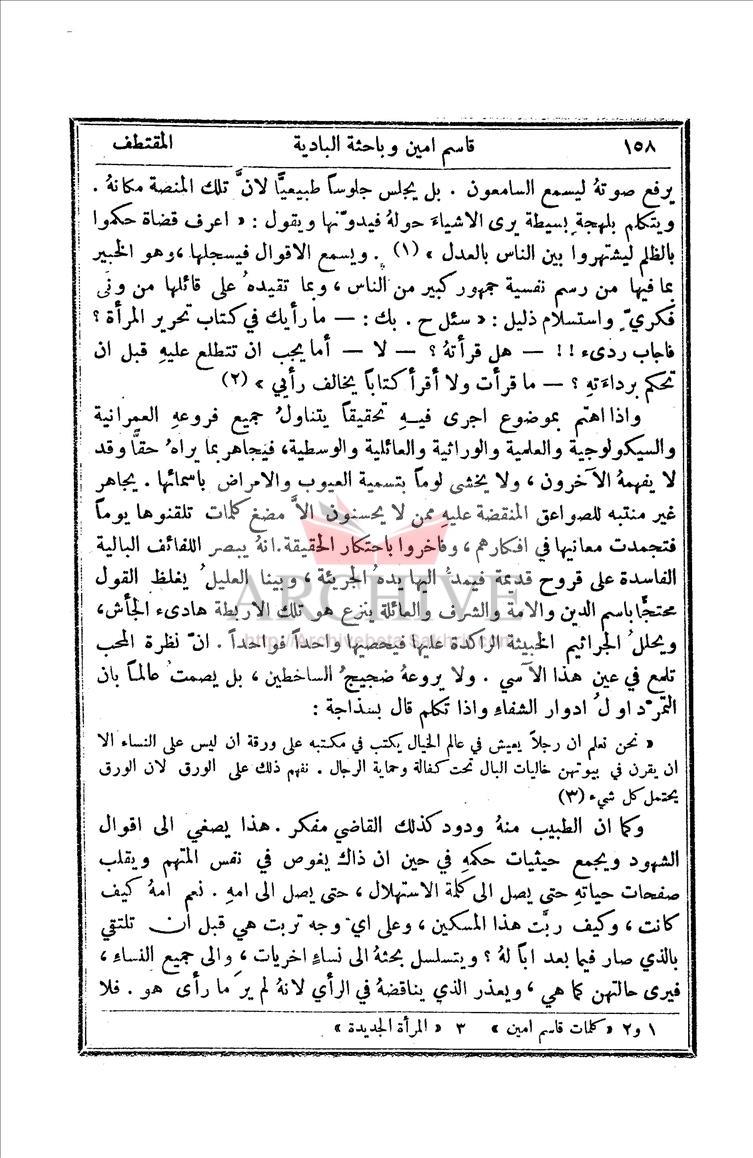 ١٥٨ قاسم امين وباحثة البادية المقتطف
يرفع صوتهُ ليسمع السامعون . بل يجلس جلوساً طبيعيًّا لانَّ تلك المنصة مكانهُ .
ويتكلم بلهجةٍ بسيطة يرى الاشياءَ حولهُ فيدوّنها ويقول : « اعرف قضاة حكموا
بالظلم ليشتهروا بين الناس بالعدل » (١) . ويسمع الاقوال فيسجلها ، وهو الخبير
بما فيها من رسم نفسية جمهور كبير من الناس ، وبما تقيدهُ على قائلها من ونًى
فكريّ واستسلام ذليل : « سئل ح . بك : — ما رأيك في كتاب تحرير المرأة ؟
فاجاب ردىء !! — هل قرأتهُ ؟ — لا — أما يجب ان تتطلع عليهِ قبل ان
تحكم برداءَتهِ ؟ — ما قرأت ولا أقرأ كتاباً يخالف رأيي » (٢)
واذا اهتم بموضوع اجرى فيهِ تحقيقاً يتناولُ جميع فروعهِ العمرانية
والسيكولوجية والعلمية والوراثية والعائلية والوسطية، فيجاهر بما يراهُ حقًّا وقد
لا يفهمهُ الآخرون ، ولا يخشى لوماً بتسمية العيوب والامراض باسمائها . يجاهر
غير منتبه للصواعق المنقضة عليه ممن لا يحسنون الاَّ مضغ كلمات تلقنوها يوماً
فتجمدت معانيها في افكارهم ، وفاخروا باحتكار الحقيقة. انهُ يبصر اللفائف البالية
الفاسدة على قروح قديمة فيمدُّ اليها يدهُ الجريئة ، وبينا العليلُ يغلظ القول
محتجًّا باسم الدين والامة والشرف والعائلة ينزع هو تلك الاربطة هادىء الجأش،
ويحللُ الجراثيم الخبيثة الراكدة عليها فيحصيها واحداً فواحداً . انّ نظرة المحب
تلمع في عين هذا الآسي . ولا يروعهُ ضجيجُ الساخطين ، بل يصمتُ عالماً بان
التمرّد اولُ ادوار الشفاءِ واذا تكلم قال بسذاجة :
« نحن نعلم ان رجلاً يعيش في عالم الخيال يكتب في مكتبه على ورقة أن ليس على النساء الا
ان يقرن في بيوتهن خاليات البال تحت كفالة وحماية الرجال . نفهم ذلك على الورق لان الورق
يحتمل كل شيء (٣)
وكما ان الطبيب منهُ ودود كذلك القاضي مفكر . هذا يصغي الى اقوال
الشهود ويجمع حيثيات حكمهِ في حين ان ذاك يغوص في نفس المتهم ويقلب
صفحات حياتهِ حتى يصل الى كلمة الاستهلال ، حتى يصل الى امهِ . نعم امهُ كيف
كانت ، وكيف ربَّت هذا المسكين ، وعلى ايّ وجه تربت هي قبل ان تلتقي
بالذي صار فيما بعد اباً لهُ ؟ ويتسلسل بحثهُ الى نساءٍ اخريات ، والى جميع النساء ،
فيرى حالتهن كما هي ، ويعذر الذي يناقضهُ في الرأي لانهُ لم يرَ ما رأى هو . فلا
١ و٢ « كلمات قاسم امين » ٣ « المرأة الجديدة »
ARCHIVE